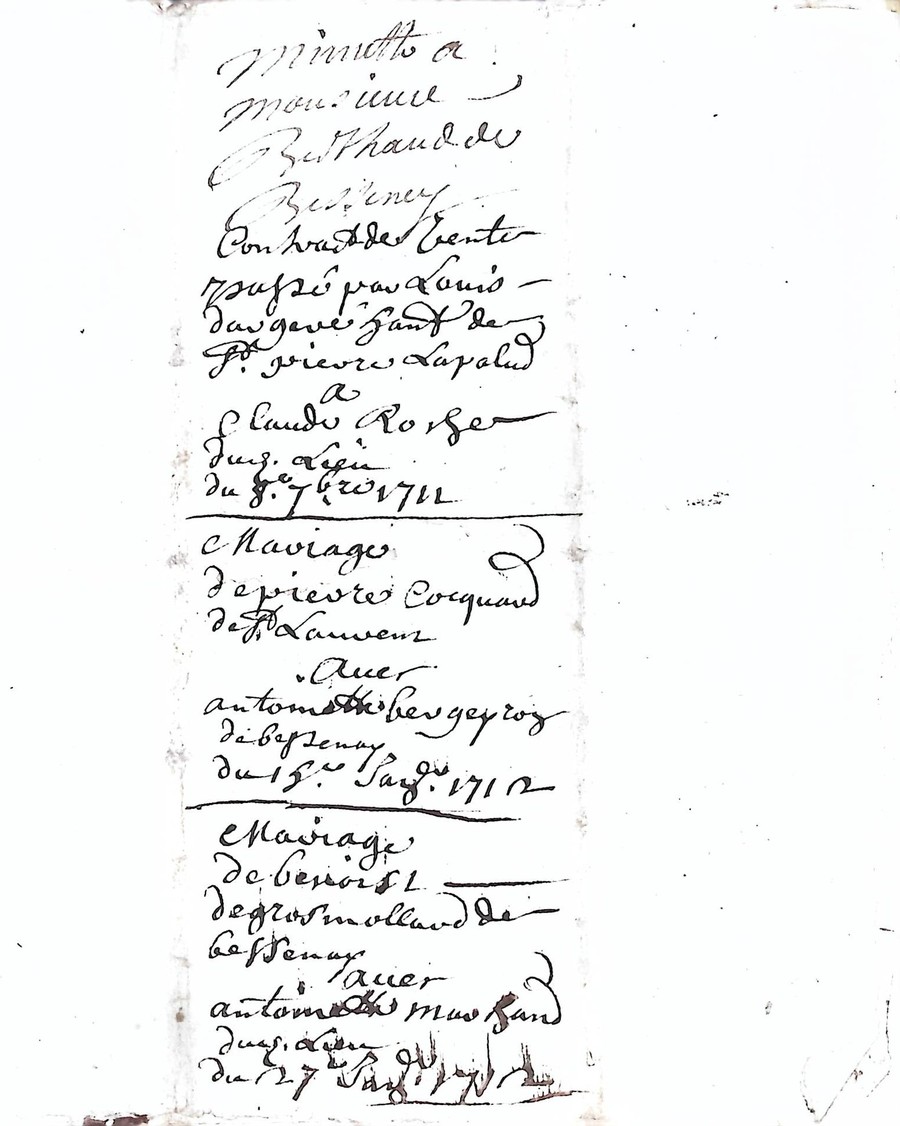 Minutte a
Monsieur
Berthaud de
Besseney
Contract de Vente
passé par Louis
dargere hant de
St. pierre Lapalud
a
Claude Rocher
dud. Lieu
du 8e. 7bre 1711
Mariage
de pierre Cocquard
de St Laurent
Avec
antoinette bergeyron
de bessenay
du 15e. Janv. 1712
Mariage
de benoist
de grosmollard de
bessenay
avec
antoinette marchand
dud. Lieu
du 27e Janv. 1712